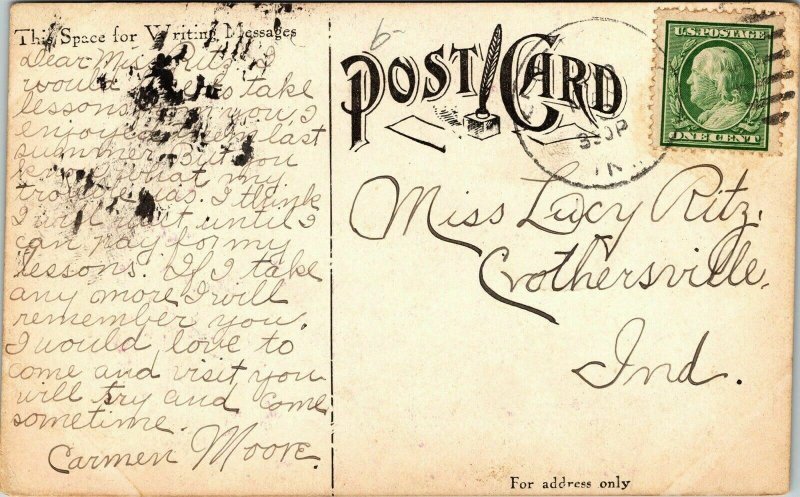 This Space for Writing Messages
Dear Miss Ritz, I
would to take
lessons you, I
enjoyed them last
summer. But you
know what my
trouble was. I think
I will wait until I
can pay for my
lessons. If I take
any more I will
remember you,
I would love to
come and visit you
will try and come
sometime.
Carmen Moore.
6
POST CARD
U.S. POSTAGE
ONE CENT
Miss Lucy Ritz,
Crothersville,
Ind.
For address only